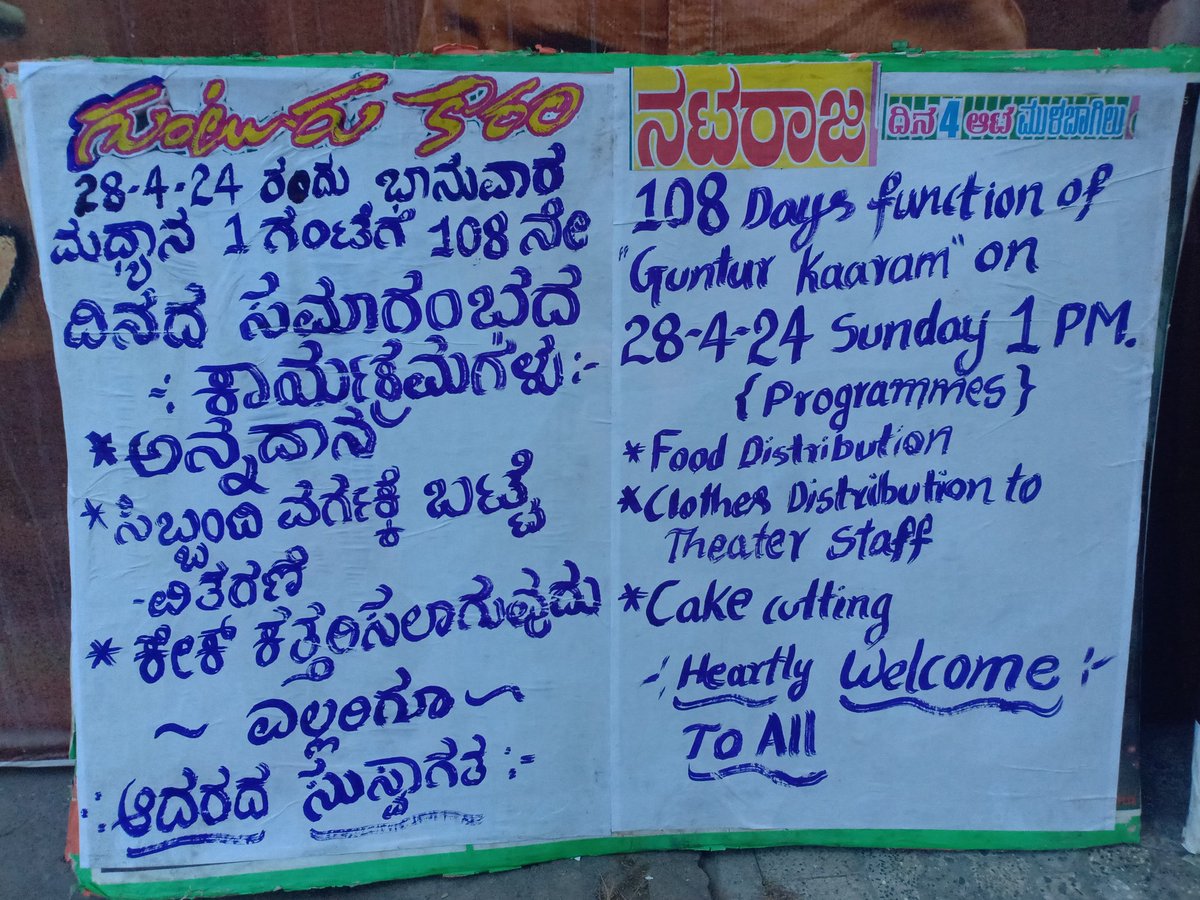 ಗುಂಟೂರು ಕಾರಂ
28-4-24 ರಂದು ಭಾನುವಾರ
ಮಧ್ಯಾನ 1 ಗಂಟೆಗೆ 108 ನೇ
ದಿನದ ಸಮಾರಂಭದ
-: ಕಾರ್ಯಕ್ರಮಗಳು :-
* ಅನ್ನದಾನ
* ಸಿಬ್ಬಂದಿ ವರ್ಗಕ್ಕೆ ಬಟ್ಟೆ
- ವಿತರಣೆ
* ಕೇಕ್ ಕತ್ತರಿಸಲಾಗುವುದು
~ ಎಲ್ಲರಿಗೂ ~
:- ಆದರದ ಸುಸ್ವಾಗತ :-
ನಟರಾಜ ದಿನ 4 ಆಟ ಮುಳಬಾಗಿಲು
108 Days function of
"Guntur Kaaram" on
28-4-24 Sunday 1 PM.
{Programmes}
* Food Distribution
* Clothes Distribution to
Theater Staff
* Cake cutting
-: Heartly Welcome :-
To All